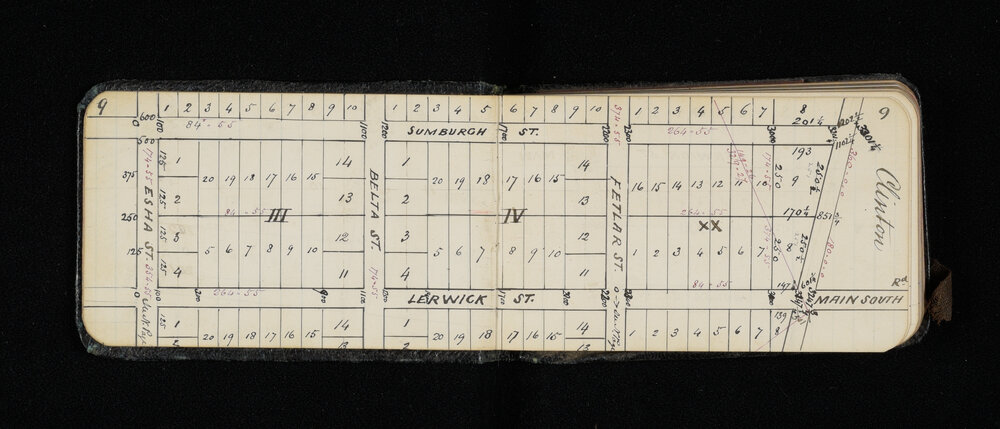 9
1 2 3 4 5 6 7 8 9 10
1 2 3 4 5 6 7 8 9 10
1 2 3 4 5 6 7 8
9
600
0
100
84-55
1100
1200
SUMBURGH
1700
ST.
2200
2300
264-55
3000
201¼
500
125
1
14
1
14
193
375
174-55
20 19 18 17 16 15
20 19 18 17 16 15
16 15 14 13 12 11 10
250
9
250½
ESHA ST.
125
2
13
BELTA ST.
2
13
FETLAR ST.
Clinton
250
84-55
III
IV
264-55
170¼
851¾
XX
125
3
12
3
12
125
5 6 7 8 9 10
5 6 7 8 9 10
1 2 3 4 5 6 7
250
8
250½
125
4
11
174-55
4
11
84-55
147
Rd
0
264-55
LERWICK
ST.
2200
MAIN SOUTH
100
125
1
14
1
14
139
20 19 18 17 16 15
20 19 18 17 16 15
1 2 3 4 5 6 7 8
2
13
2
13